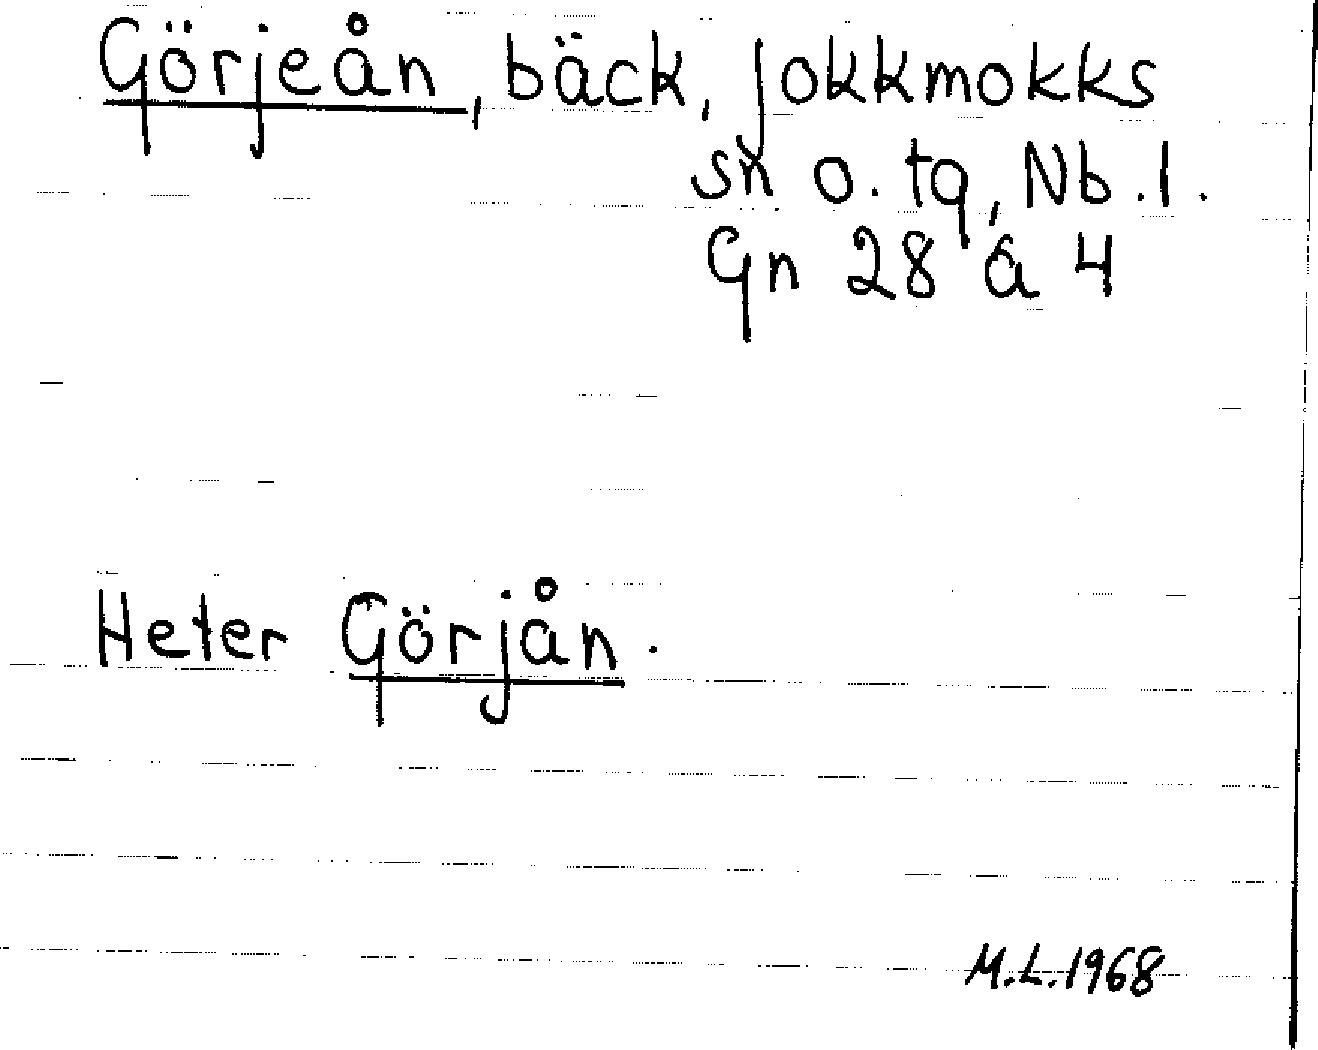 Görjeån, bäck, Jokkmokks
sn o. tg, Nb. l.
Gn 28 á 4
Heter Görjån.
M.L. 1968